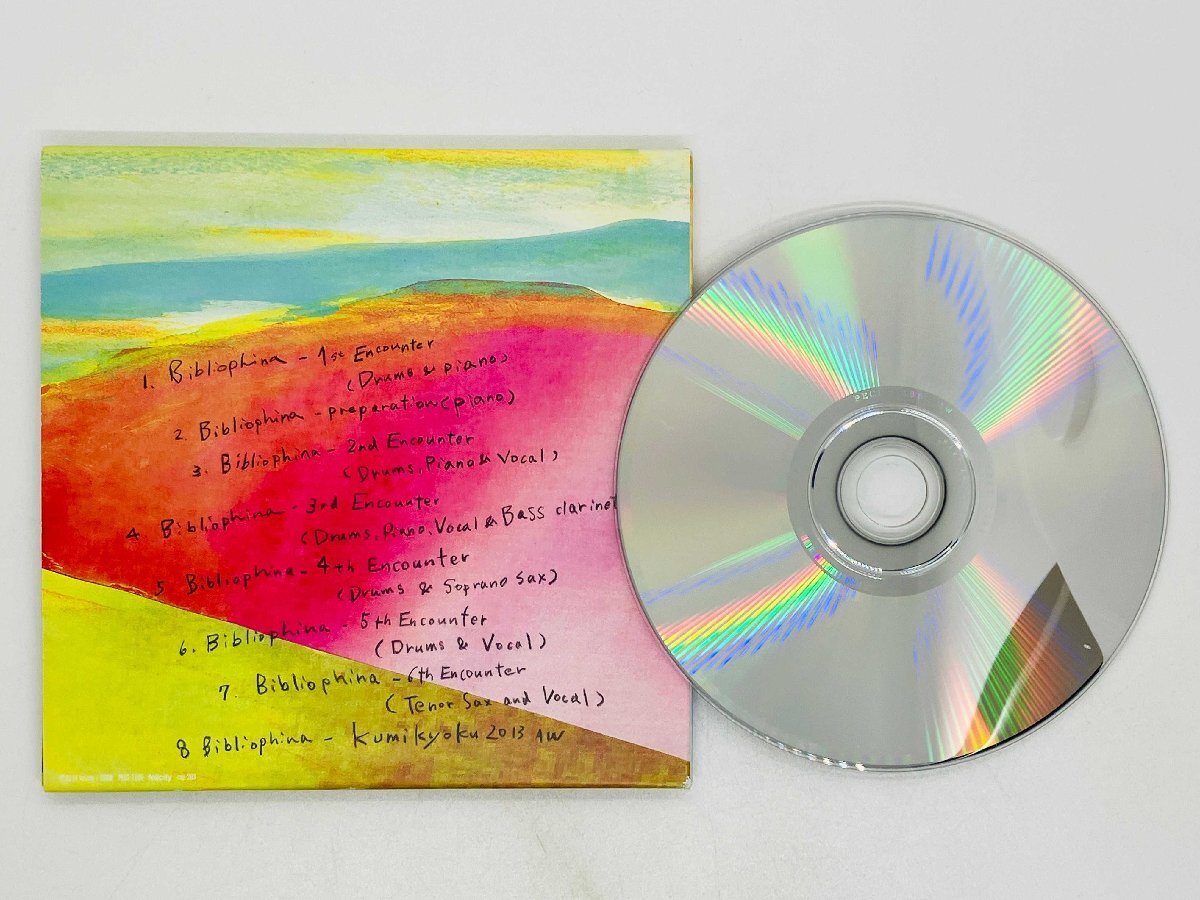 1. Bibliophina - 1st Encounter
(Drums & piano)
2. Bibliophina - preparation (piano)
3. Bibliophina - 2nd Encounter
(Drums, Piano & Vocal)
4 Bibliophina - 3rd Encounter
(Drums, Piano, Vocal & Bass clarinet
5 Bibliophina - 4th Encounter
(Drums & Soprano Sax)
6. Bibliophina - 5th Encounter
(Drums & Vocal)
7. Bibliophina - 6th Encounter
(Tenor Sax and Vocal)
8 Bibliophina - Kumikyoku 2013 AW
felicity